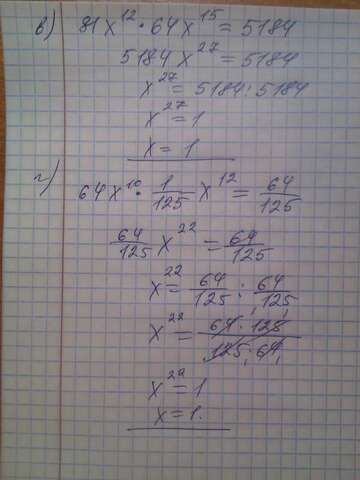 в) 81x¹² · 64x¹⁵ = 5184
5184x²⁷ = 5184
x²⁷ = 5184 : 5184
x²⁷ = 1
x = 1
г) 64x¹⁰ · 1/125 x¹² = 64/125
64/125 x²² = 64/125
x²² = 64/125 : 64/125
x²² = 64 · 125 / 125 · 64
x²² = 1
x = 1.